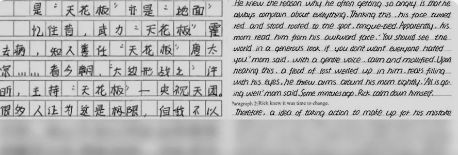 是“天花板”非是“地面”
忆往昔 武力“天花板”霍
去病,知人善任“天花板”唐太
宗……看今朝,“大山形战士”许
昕,主持“天花板”—央视天团
很多人认为这是极限,但我不以
He knew the reason why he often getting so angry is that he
always complain about everything. Thinking this, his face turned
red and stood rooted to the spot, tongue-tied. Apparently, his
mom read him from his awkward face. "You should see the
world in a generous look if you don't want everyone hated
you" mom said with a gentle voice, calm and mollified. Upon
hearing this, a flood of test welled up in him, tears filling
with his eyes, he threw arms around his mom tightly. "All is go-
ing well" mom said. Some minutes ago, Rick calm down himself.
Paragraph 2: Rick knew it was time to change.
Therefore, a idea of taking action to make up for his mistake